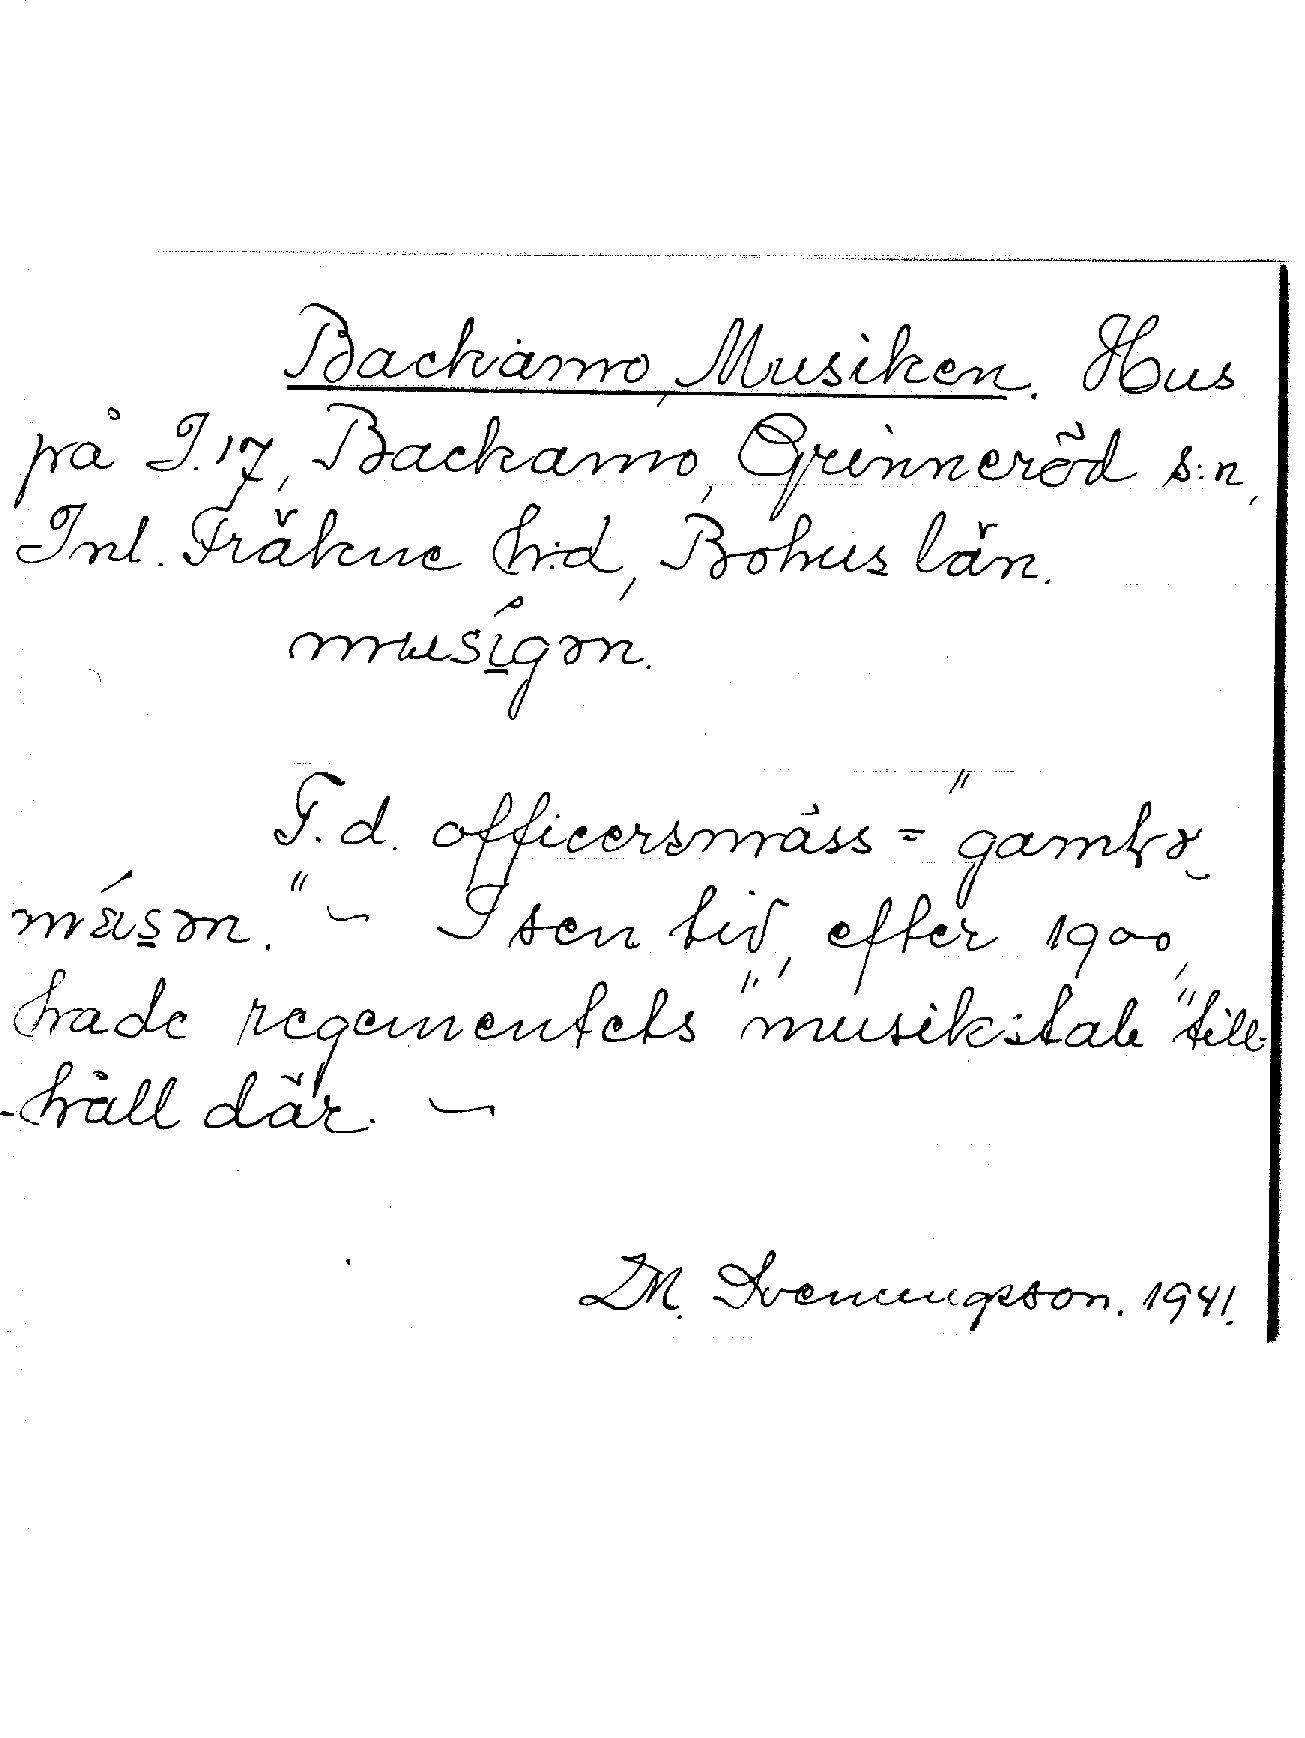 Backamo, Musiken. Hus
på I.17, Backamo, Grinneröd s:n,
Inl. Fräkne h:d, Bohus län.
musígən.
F.d. officersmäss = "gamlə
mǽsən." — I sen tid, efter 1900,
hade regementets "musikstab" till-
-håll där. —
M. Svenungsson. 1941.